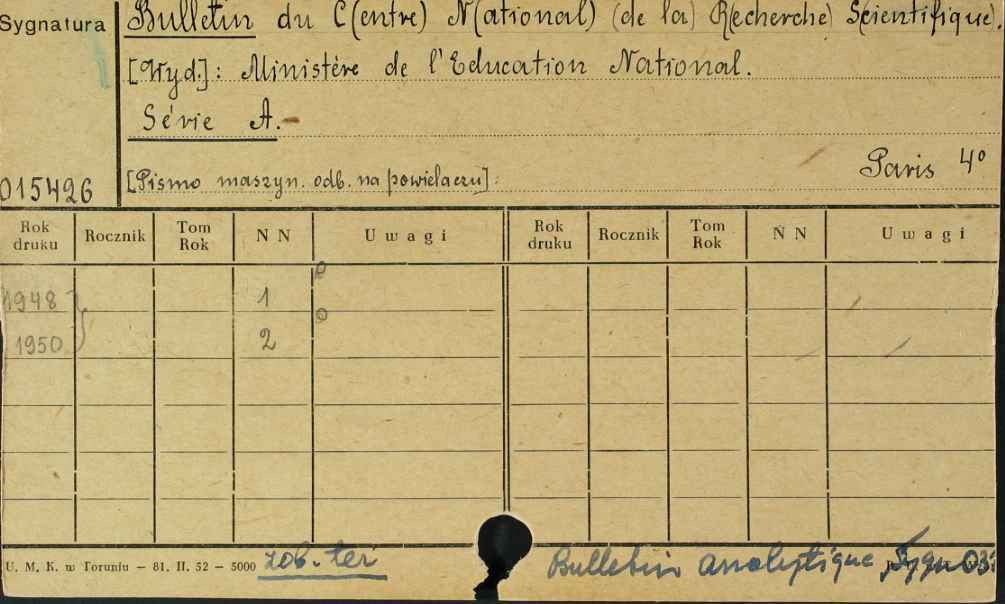 Sygnatura Bulletin du C(entre) N(ational) (de la) R(echerche) Scientifique).
[Wyd.]: Ministère de l'Education National.
Série A.-
Paris 4°
015426 [Pismo maszyn. odb. na powielaczu]:
Rok druku Rocznik Tom Rok N N Uwagi Rok druku Rocznik Tom Rok N N Uwagi
1948 1
1950 2
U. M. K. w Toruniu — 81. II. 52 — 5000 zob. też Bulletin analytique